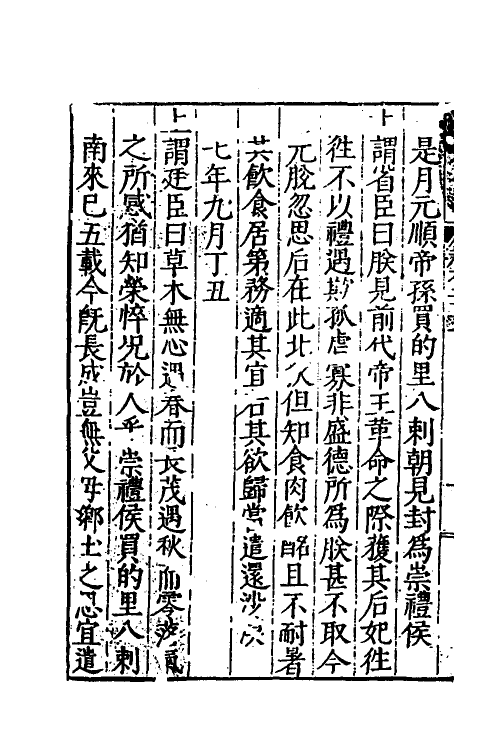 是月元順帝孫買的里八剌朝見封為崇禮侯
上謂省臣曰朕見前代帝王革命之際獲其后妃徃
徃不以禮遇欺孤虐寡非盛德所為朕甚不取今
元脫忽思后在此北人但知食肉飲酪且不耐暑
其飲食居第務適其宜若其欲歸當遣還沙漠
七年九月丁丑
上謂廷臣曰草木無心遇春而長茂遇秋而零落氣
之所感猶知榮悴况於人乎崇禮侯買的里八剌
南來已五載今旣長成豈無父母鄉土之思宜遣